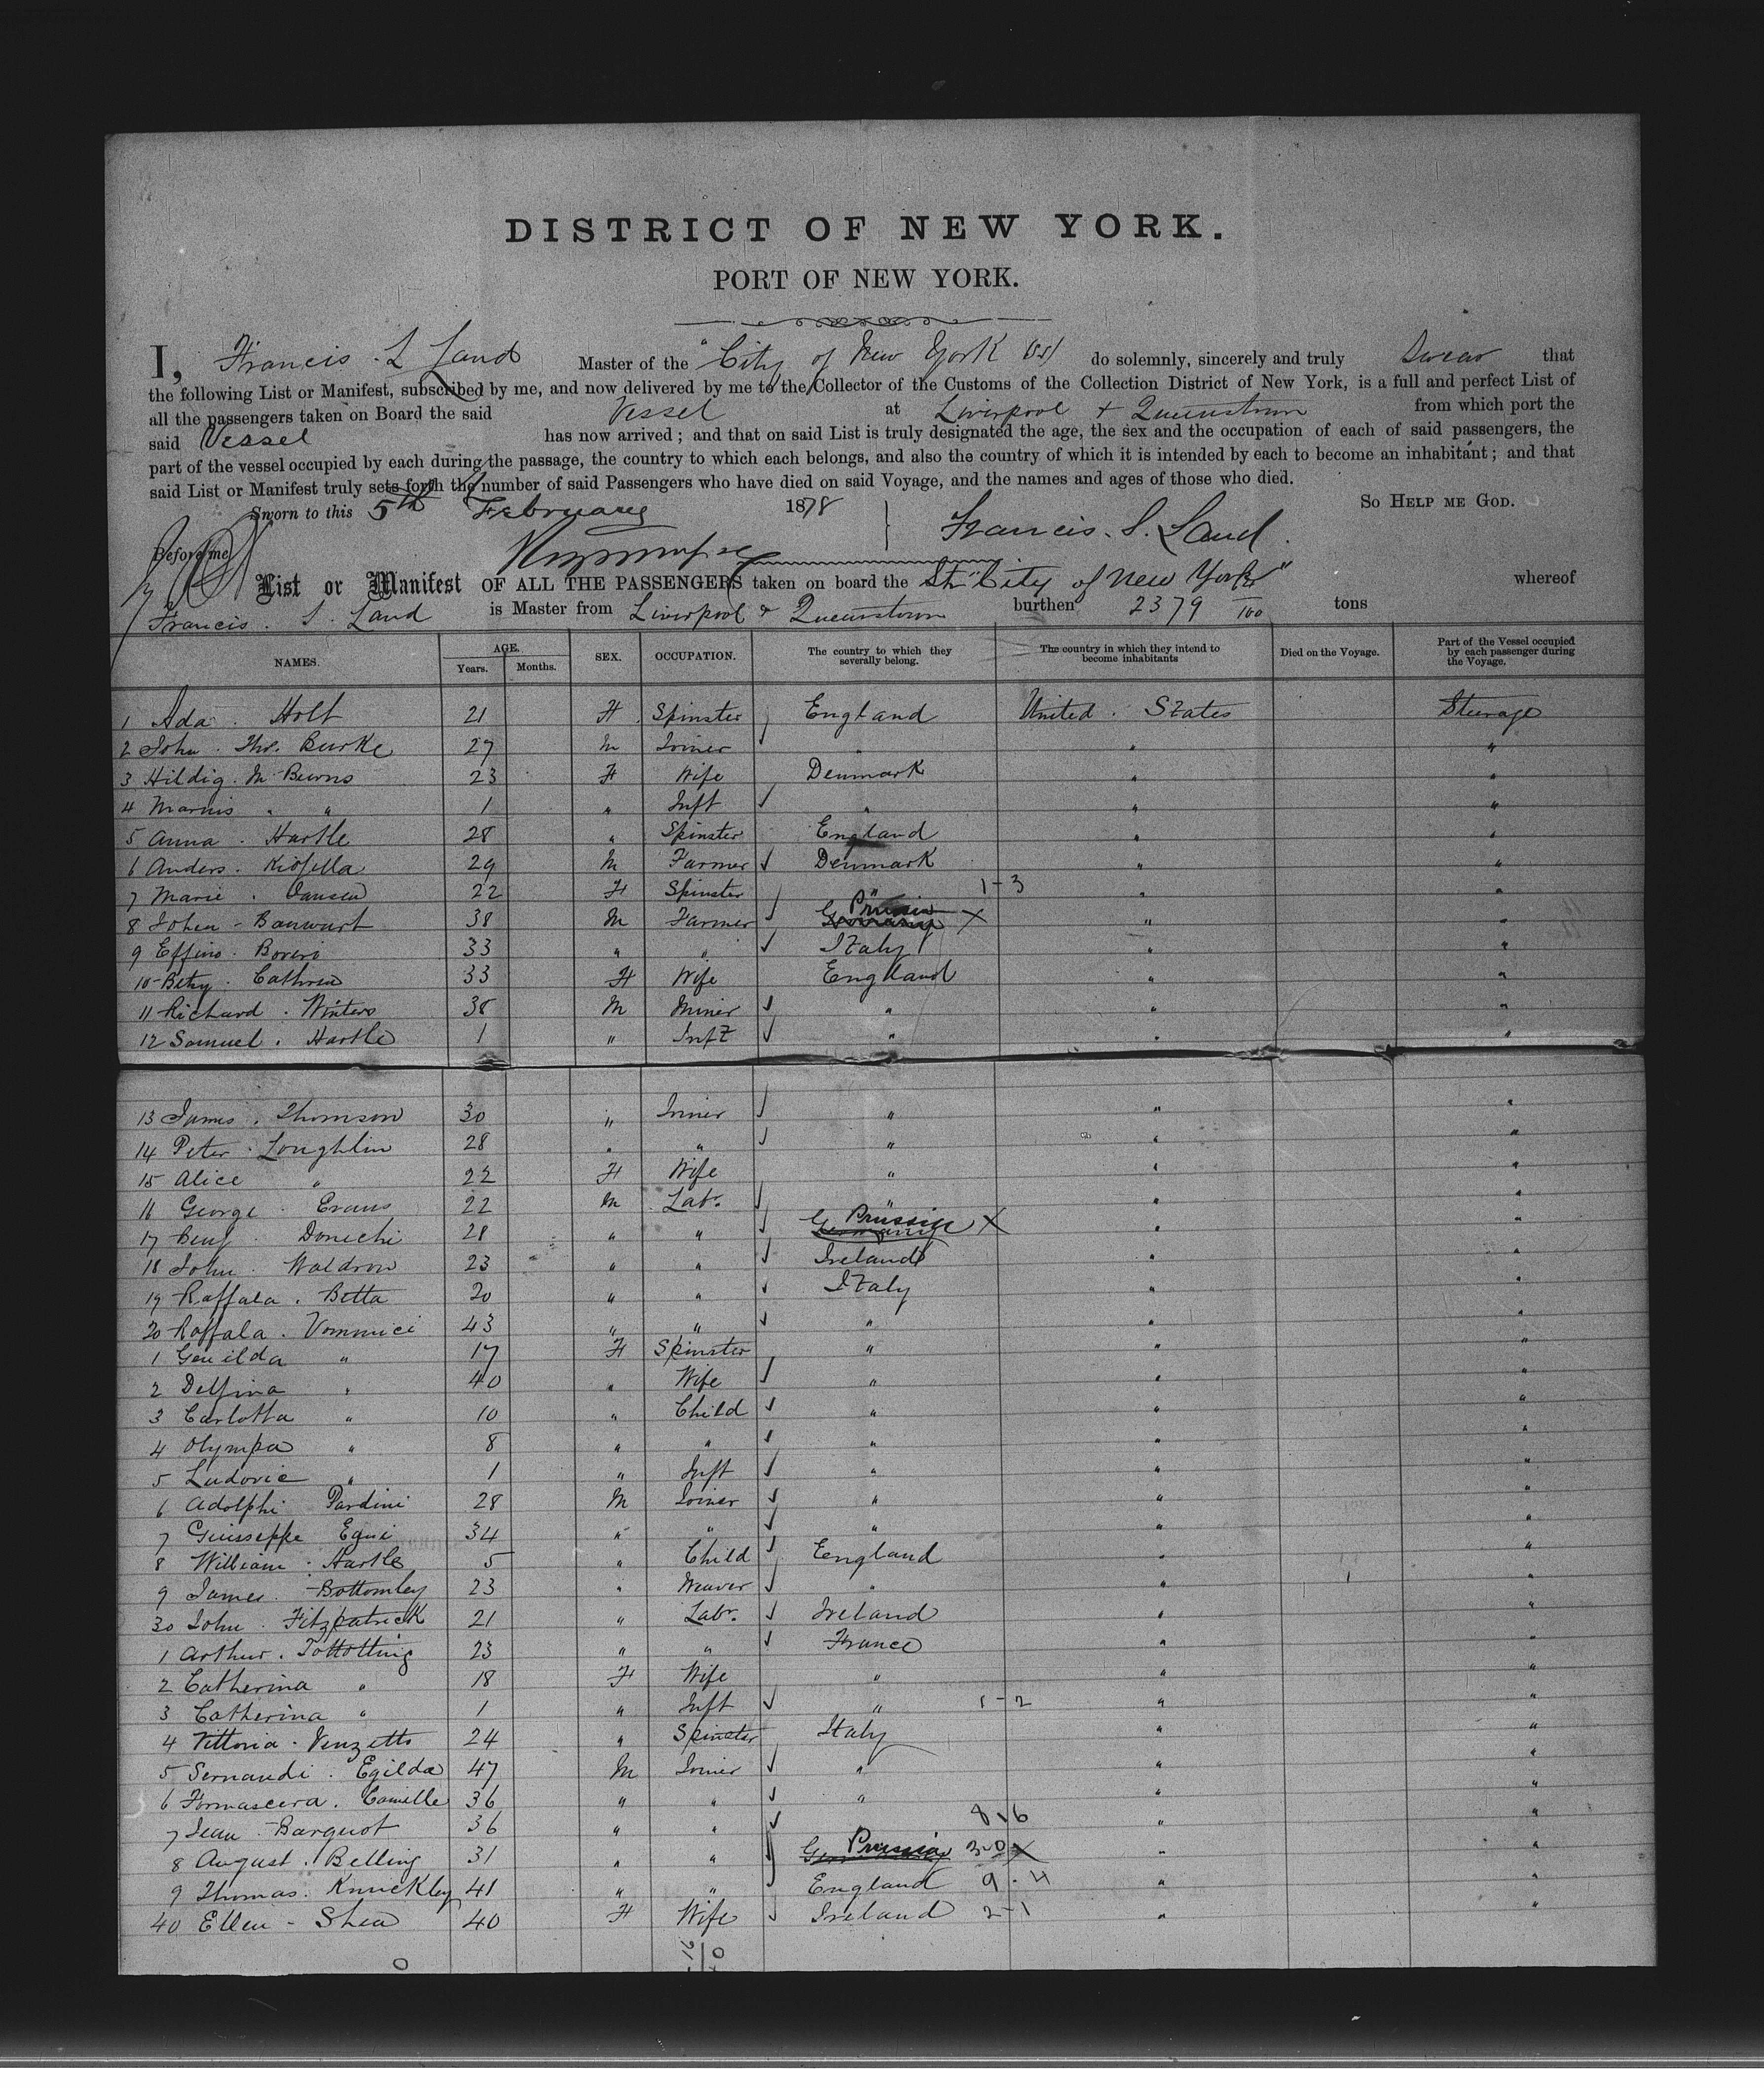 DISTRICT OF NEW YORK.
PORT OF NEW YORK.
I, Francis S Land Master of the "City of New York (SS) do solemnly, sincerely and truly Swear that
the following List or Manifest, subscribed by me, and now delivered by me to the Collector of the Customs of the Collection District of New York, is a full and perfect List of
all the passengers taken on Board the said Vessel at Liverpool & Queenstown from which port the
said Vessel has now arrived; and that on said List is truly designated the age, the sex and the occupation of each of said passengers, the
part of the vessel occupied by each during the passage, the country to which each belongs, and also the country of which it is intended by each to become an inhabitant; and that
said List or Manifest truly sets forth the number of said Passengers who have died on said Voyage, and the names and ages of those who died.
So HELP ME GOD.
Sworn to this 5th February 1878 Francis. S. Land.
Before me
List or Manifest OF ALL THE PASSENGERS taken on board the Str "City of New York" whereof
Francis. S. Land is Master from Liverpool & Queenstown burthen 2379 /100 tons
NAMES. AGE. Years. Months. SEX. OCCUPATION. The country to which they severally belong. The country in which they intend to become inhabitants Died on the Voyage. Part of the Vessel occupied by each passenger during the Voyage.
1 Ada. Holt 21 F Spinster England United. States Steerage
2 John. Thos. Burke 27 M Joiner " " "
3 Hildig. M 23 F Wife Denmark " "
4 " " 1 " Inft " " "
5 Anna. Hartle 28 " Spinster England " "
6 Anders. 29 M Farmer Denmark " "
7 Marie. Jansen 22 F Spinster " 1-3 " "
8 John - Banwart 38 M Farmer Germany Prussia X " "
9 Effino. Boveri 33 " " Italy " "
10 Betsy. 33 F Wife England " "
11 Richard. Winters 38 M Miner " " "
12 Samuel. Hartle 1 " Inft " " "
13 James. Thomson 30 " Joiner " " "
14 Peter. Loughlin 28 " " " " "
15 Alice " 22 F Wife " " "
16 George. Evans 22 M Labr. " " "
17 Benj. Donechi 28 " " Germany Prussia X " "
18 John. Waldron 23 " " Ireland " "
19 Raffala. Betta 20 " " Italy " "
20 Raffala. Vannucci 43 " " " " "
1 Genilda " 17 F Spinster " " "
2 Delfina " 40 " Wife " " "
3 Carlotta " 10 " Child " " "
4 Olympa " 8 " " " " "
5 Ludovic " 1 " Inft " " "
6 Adolphi Pardini 28 M Joiner " " "
7 Guisseppe Equi 34 " " " " "
8 William. Hartle 5 " Child England " "
9 James. Bottomley 23 " Weaver " " "
30 John. Fitzpatrick 21 " Labr. Ireland " "
1 Arthur. 23 " " France " "
2 Catherina " 18 F Wife " " "
3 Catherina " 1 " Inft " 1-2 " "
4 Vittoria. Venzetto 24 " Spinster Italy " "
5 Sernandi. Egilda 47 M Joiner " " "
6 Fornascera. Camille 36 " " " " "
7 Jean. Barquot 36 " " 816 " "
8 August. Belling 31 " " Germany Prussia 3-0 X " "
9 Thomas. Knuckley 41 " " England 9-4 " "
40 Ellen - Shea 40 F Wife Ireland 2-1 " "